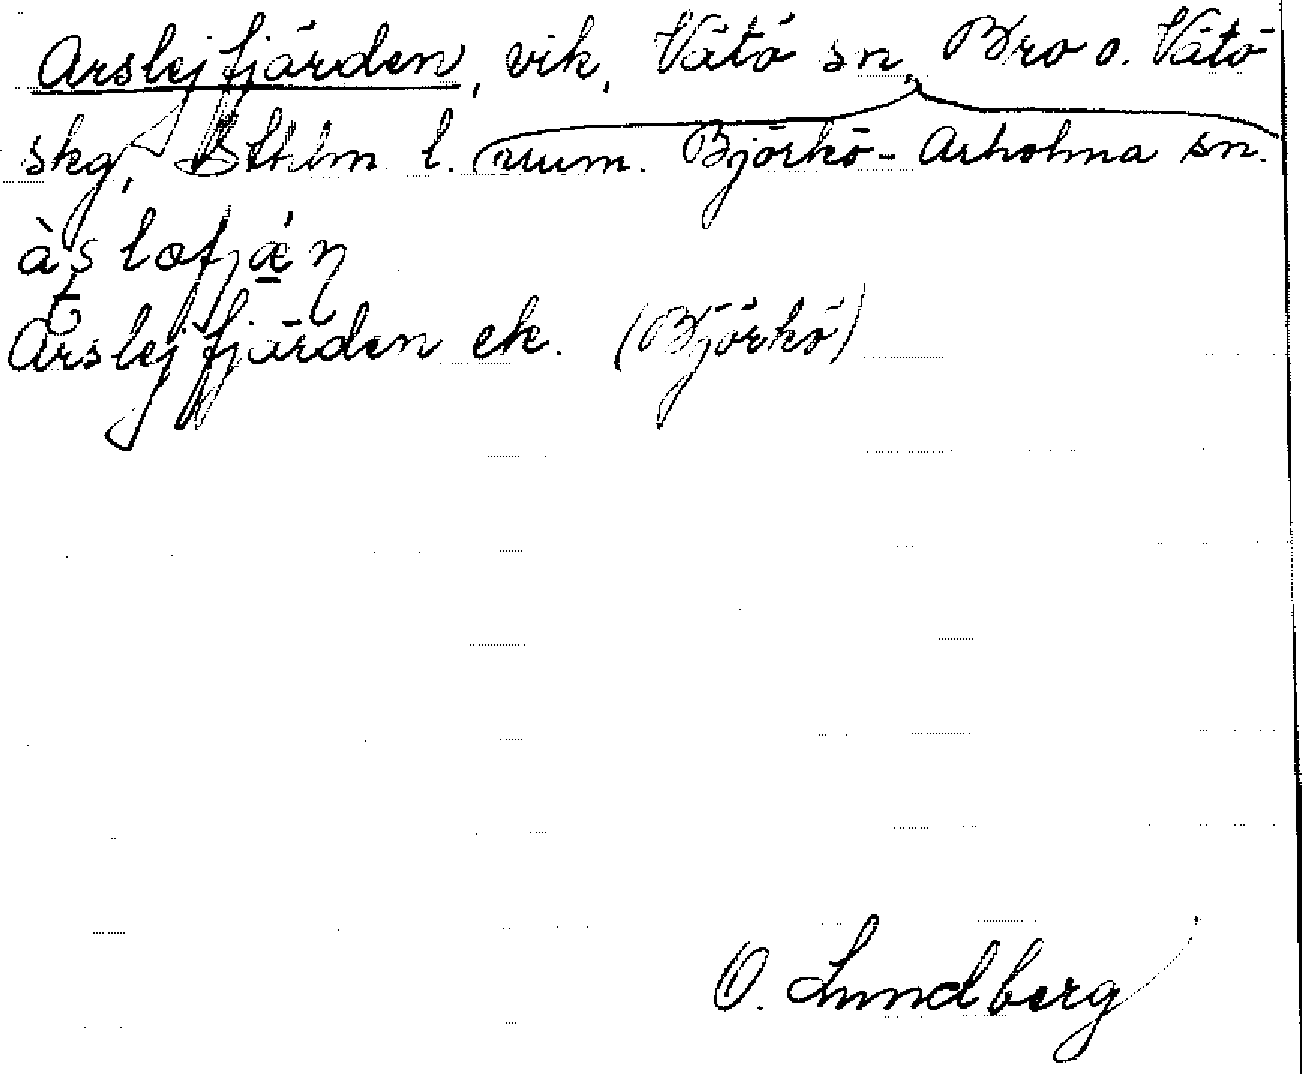 Arslejfjärden, vik, Vätö sn, Bro o. Vätö
skg, Sthlm l. (num. Björkö-Arholma sn.
àslofjǽ̲ṇ
Arslejfjärden ek. (Björkö)
O. Lundberg